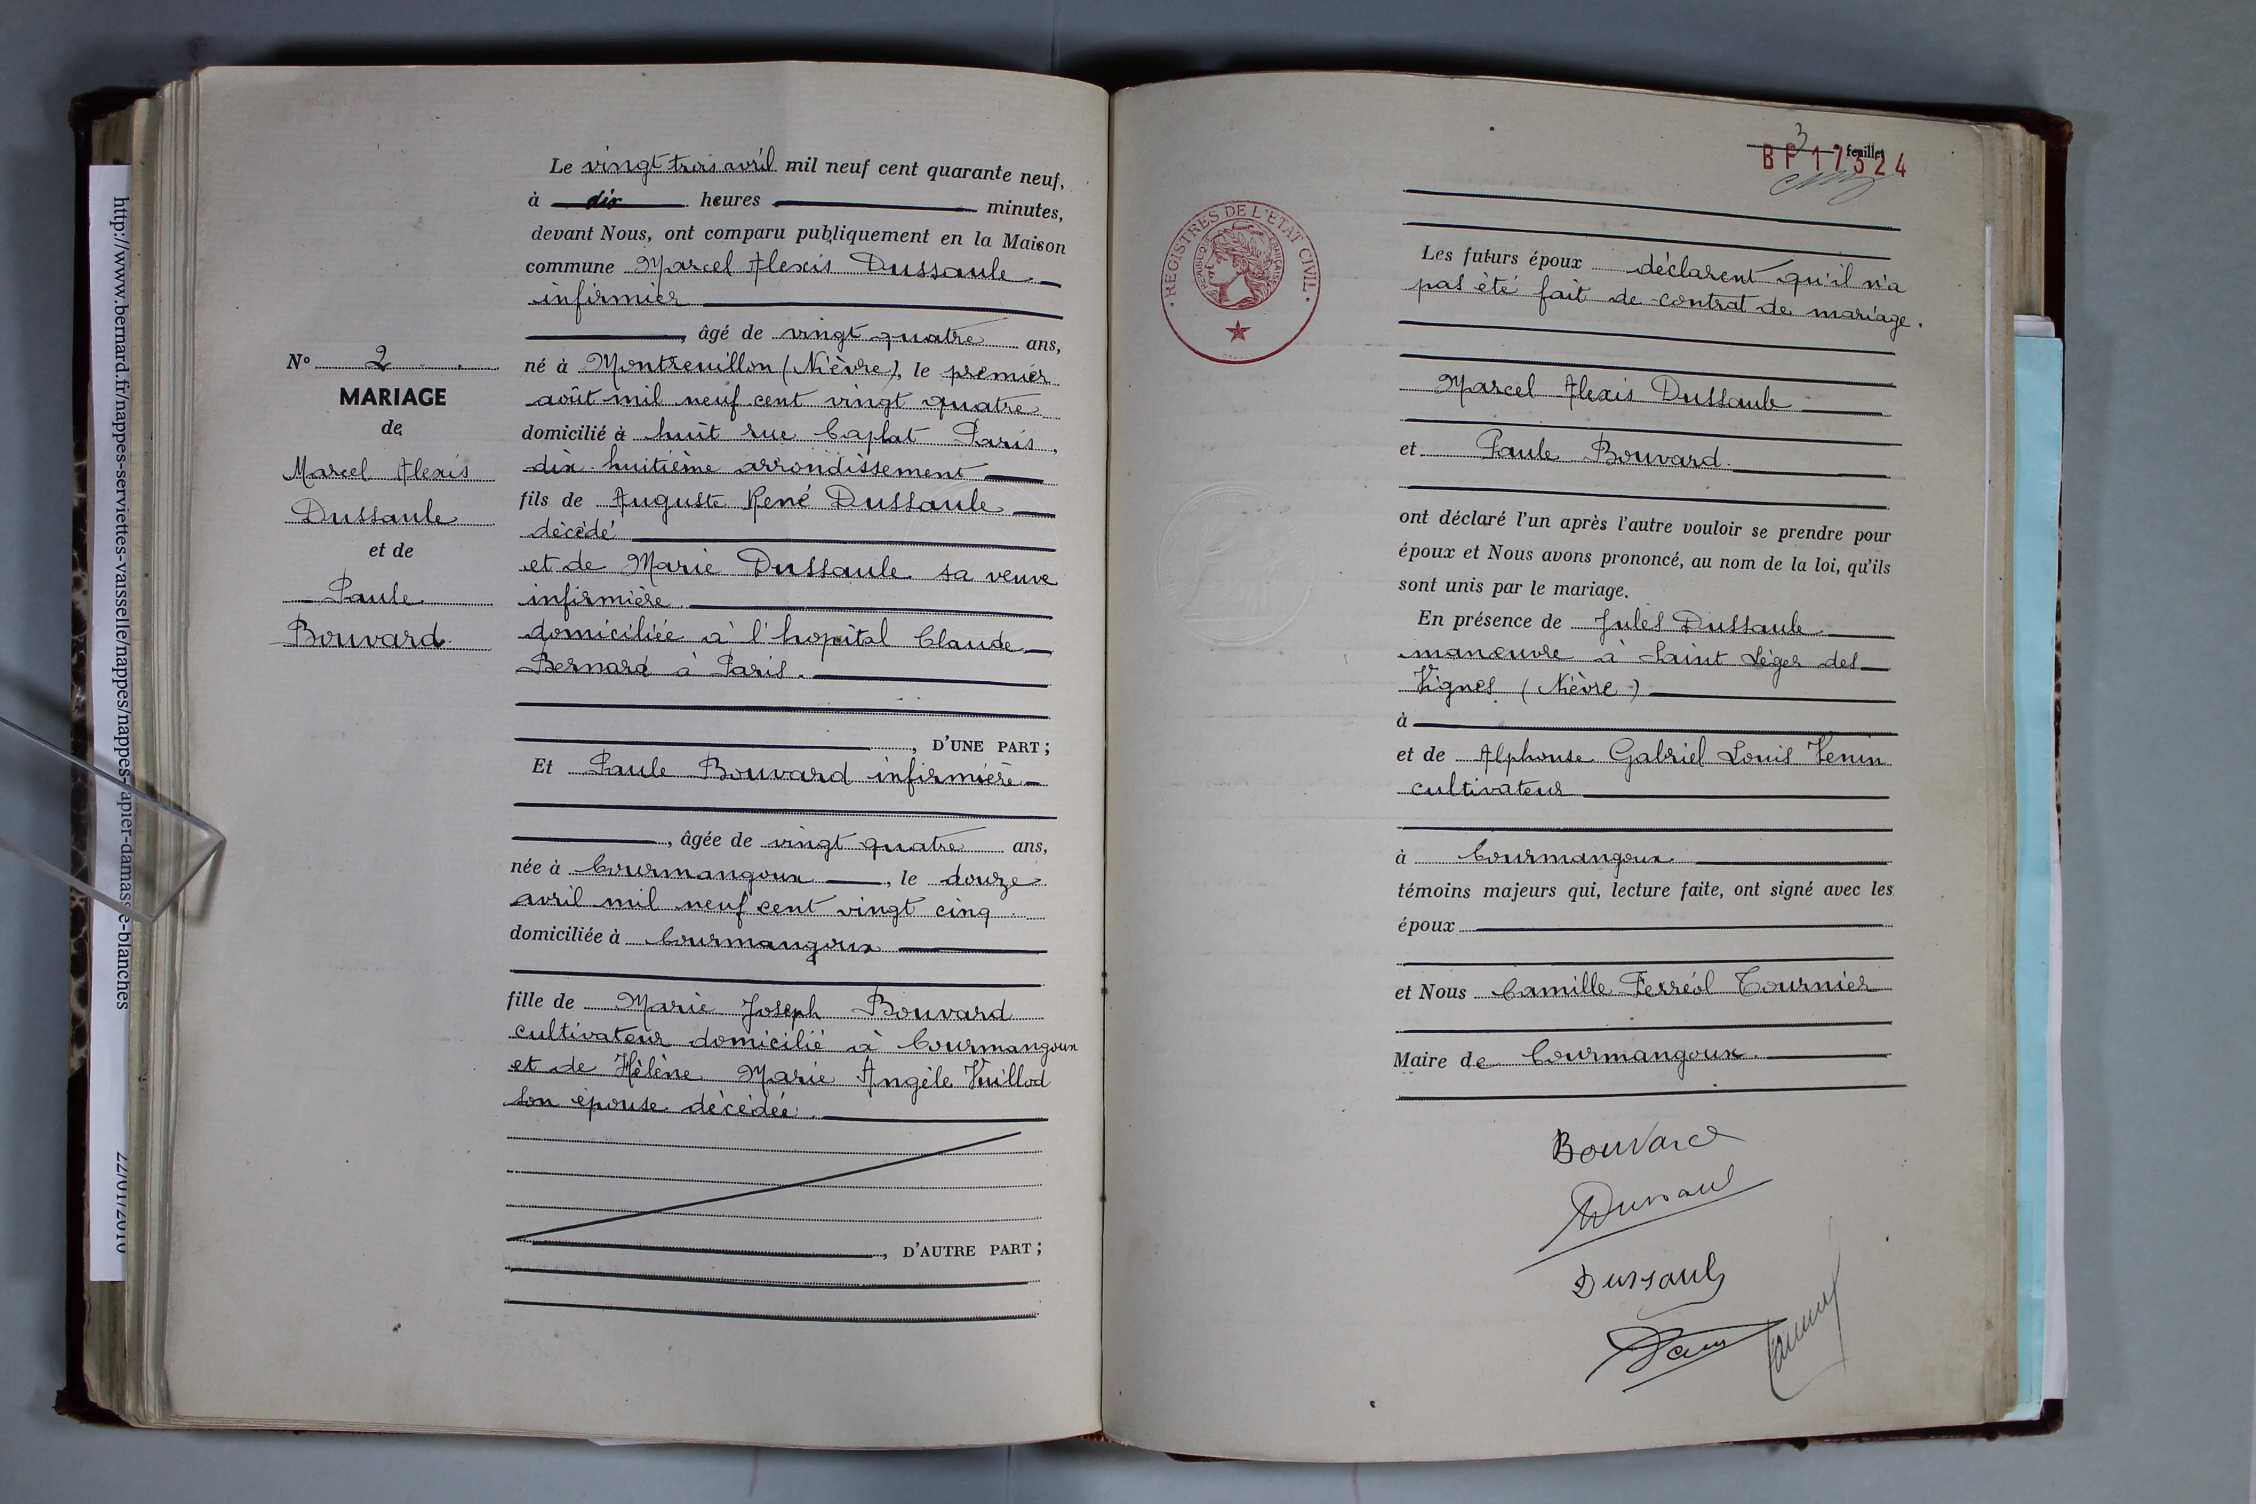 http://www.bernard.fr/fna/nappes-serviettes-vaisselle/nappes/nappes-papier-damasse-blanches
22/01/2010
Le vingt trois avril mil neuf cent quarante neuf,
à dix heures minutes,
devant Nous, ont comparu publiquement en la Maison
commune Marcel Alexis Dussaule
infirmier
, âgé de vingt quatre ans,
né à Montreuillon (Nièvre), le premier
août mil neuf cent vingt quatre
domicilié à huit rue Caplat Paris,
dix huitième arrondissement
fils de Auguste René Dussaule
décédé
et de Marie Dussaule sa veuve
infirmière
domiciliée à l'hopital Claude
Bernard à Paris.
, D'UNE PART ;
Et Paule Bouvard infirmière
, âgée de vingt quatre ans,
née à Courmangoux, le douze
avril mil neuf cent vingt cinq
domiciliée à Courmangoux
fille de Marie Joseph Bouvard
cultivateur domicilié à Courmangoux
et de Hélène Marie Angèle Vuillod
son épouse décédée.
, D'AUTRE PART ;
N° 2
MARIAGE
de
Marcel Alexis
Dussaule
et de
Paule
Bouvard
3 feuillet
BF 17324
REGISTRES DE L'ETAT CIVIL
Les futurs époux déclarent qu'il n'a
pas été fait de contrat de mariage.
Marcel Alexis Dussaule
et Paule Bouvard.
ont déclaré l'un après l'autre vouloir se prendre pour
époux et Nous avons prononcé, au nom de la loi, qu'ils
sont unis par le mariage.
En présence de Jules Dussaule
manœuvre à Saint Léger des
Vignes (Nièvre)
à
et de Alphonse Gabriel Louis Venin
cultivateur
à Courmangoux
témoins majeurs qui, lecture faite, ont signé avec les
époux
et Nous Camille Ferréol Tournier
Maire de Courmangoux
Bouvard
Dussaul
Dussaule